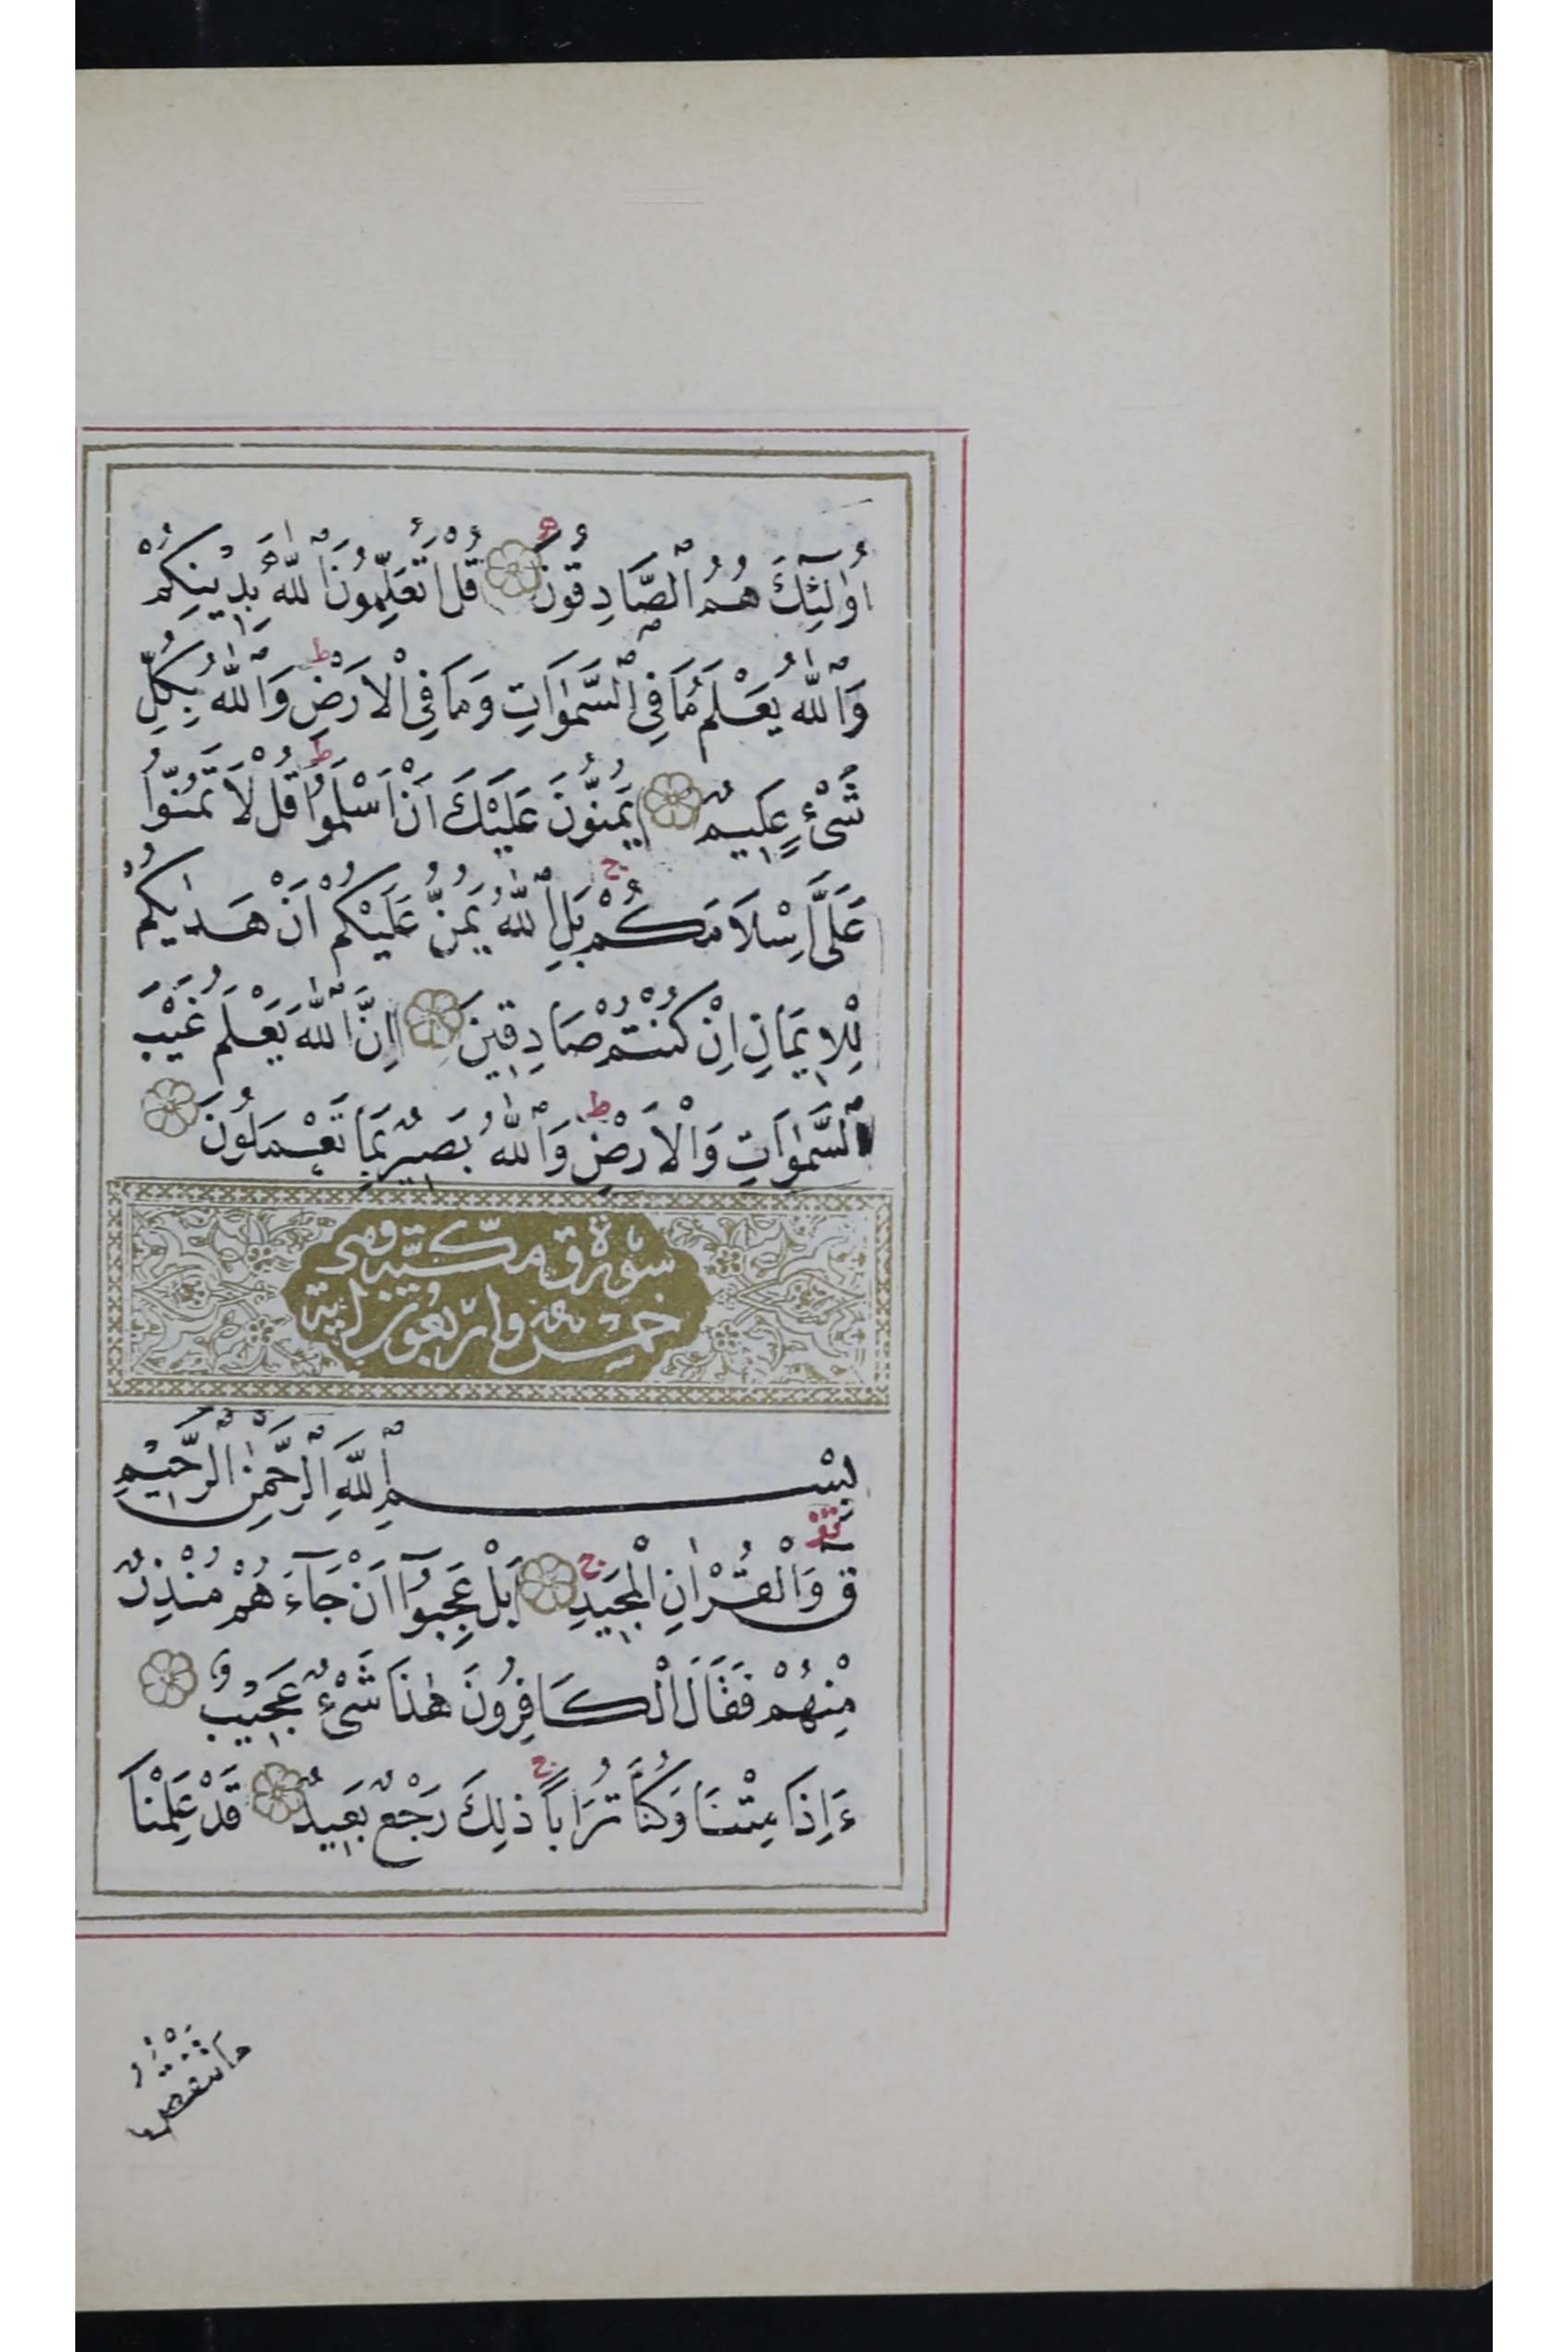 اُولٰٓئِكَ هُمُ ٱلصَّادِقُونَ قُلْ اَتُعَلِّمُونَ ٱللّٰهَ بِدِينِكُمْ
وَٱللّٰهُ يَعْلَمُ مَا فِى ٱلسَّمٰوَاتِ وَمَا فِى ٱلْاَرْضِ ط وَٱللّٰهُ بِكُلِّ
شَىْءٍ عَلِيمٌ يَمُنُّونَ عَلَيْكَ اَنْ اَسْلَمُوا ط قُلْ لَا تَمُنُّوا
عَلَىَّ اِسْلَامَكُمْ ج بَلِ ٱللّٰهُ يَمُنُّ عَلَيْكُمْ اَنْ هَدٰيكُمْ
لِلْاِيمَانِ اِنْ كُنْتُمْ صَادِقِينَ اِنَّ ٱللّٰهَ يَعْلَمُ غَيْبَ
ٱلسَّمٰوَاتِ وَالْاَرْضِ ط وَٱللّٰهُ بَصِيرٌ بِمَا تَعْمَلُونَ
سُورَةُ ق مَكِّيَّة وهى
خمس واربعون اية
بِسْمِ ٱللّٰهِ ٱلرَّحْمٰنِ ٱلرَّحِيمِ
قٓ وَالْقُرْاٰنِ الْمَجِيدِ ج بَلْ عَجِبُوٓا اَنْ جَآءَهُمْ مُنْذِرٌ
مِنْهُمْ فَقَالَ الْكَافِرُونَ هٰذَا شَىْءٌ عَجِيبٌ
ءَاِذَا مِتْنَا وَكُنَّا تُرَاباً ج ذٰلِكَ رَجْعٌ بَعِيدٌ قَدْ عَلِمْنَا
مَا تَنْقُصُ